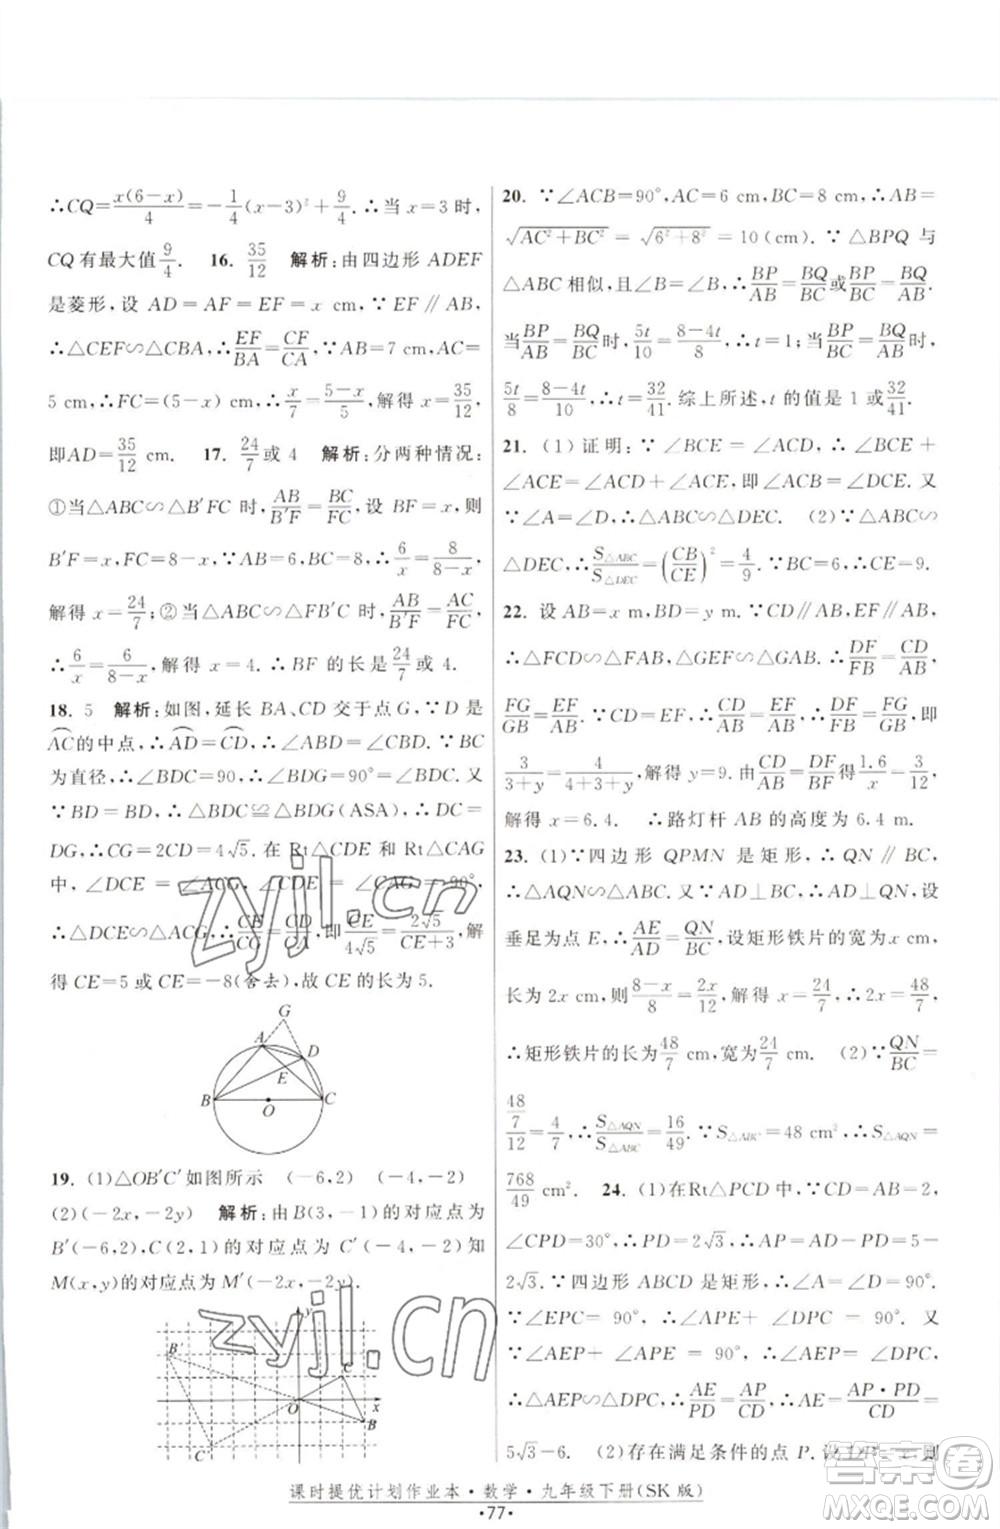 ∴CQ=x(6-x)/4=-1/4(x-3)²+9/4.∴当 x=3 时,
CQ 有最大值 9/4. 16. 35/12 解析:由四边形 ADEF
是菱形,设 AD=AF=EF=x cm,∵EF∥AB,
∴△CEF∽△CBA,∴EF/BA=CF/CA.∵AB=7 cm,AC=
5 cm,∴FC=(5-x)cm,∴x/7=(5-x)/5,解得 x=35/12,
即AD=35/12 cm. 17. 24/7或 4 解析:分两种情况:
①当△ABC∽△B′FC 时,AB/B′F=BC/FC,设 BF=x,则
B′F=x,FC=8-x,∵AB=6,BC=8,∴6/x=8/(8-x),
解得 x=24/7;②当△ABC∽△FB′C 时,AB/FB′=AC/FC,
∴6/x=6/(8-x),解得 x=4.∴BF 的长是24/7或 4.
18. 5 解析:如图,延长 BA、CD 交于点 G,∵D 是
AC的中点,∴AD=CD,∴∠ABD=∠CBD.∵BC
为直径,∴∠BDC=90,∴∠BDG=90°=∠BDC.又
∵BD=BD,∴△BDC≌△BDG(ASA),∴DC=
DG,∴CG=2CD=4√5.在 Rt△CDE 和 Rt△CAG
中,∠DCE=∠ACG,∠CDE=∠CAG=90°,
∴△DCE∽△ACG,∴CE/CG=CD/CA,即CE/4√5=2√5/(CE+3),解
得 CE=5 或 CE=-8(舍去),故 CE 的长为 5.
G
A
D
E
B
O
C
19. (1)△OB′C′如图所示 (-6,2) (-4,-2)
(2)(-2x,-2y) 解析:由B(3,-1)的对应点为
B′(-6,2),C(2,1)的对应点为 C′(-4,-2)知
M(x,y)的对应点为 M′(-2x,-2y).
y
B′
C
O
x
B
C′
20. ∵∠ACB=90°,AC=6 cm,BC=8 cm,∴AB=
√(AC²+BC²)=√(6²+8²)=10(cm).∵△BPQ 与
△ABC 相似,且∠B=∠B,∴BP/AB=BQ/BC或BP/BC=BQ/AB.
当BP/AB=BQ/BC时,5t/10=(8-4t)/8,∴t=1;当BP/BC=BQ/AB时,
5t/8=(8-4t)/10,∴t=32/41.综上所述,t 的值是 1 或32/41.
21. (1)证明:∵∠BCE=∠ACD,∴∠BCE+
∠ACE=∠ACD+∠ACE,即∠ACB=∠DCE.又
∵∠A=∠D,∴△ABC∽△DEC. (2)∵△ABC∽
△DEC,∴S△ABC/S△DEC=(CB/CE)²=4/9.又∵BC=6,∴CE=9.
22. 设 AB=x m,BD=y m.∵CD∥AB,EF∥AB,
∴△FCD∽△FAB,△GEF∽△GAB.∴DF/FB=CD/AB,
FG/GB=EF/AB.∵CD=EF,∴CD/AB=EF/AB,∴DF/FB=FG/GB,即
3/(3+y)=4/(4+3+y),解得 y=9.由CD/AB=DF/BF得1.6/x=3/12,
解得 x=6.4. ∴路灯杆 AB 的高度为 6.4 m.
23. (1)∵四边形 QPMN 是矩形,∴QN∥BC,
∴△AQN∽△ABC.又∵AD⊥BC,∴AD⊥QN,设
垂足为点 E,∴AE/AD=QN/BC,设矩形铁片的宽为x cm,
长为 2x cm,则(8-x)/8=2x/12,解得 x=24/7,∴2x=48/7,
∴矩形铁片的长为48/7 cm,宽为24/7 cm. (2)∵QN/BC=
48/7/12=4/7,∴S△AQN/S△ABC=16/49.∵S△ABC=48 cm²,∴S△AQN=
768/49 cm². 24. (1)在Rt△PCD 中,∵CD=AB=2,
∠CPD=30°,∴PD=2√3,∴AP=AD-PD=5-
2√3.∵四边形 ABCD 是矩形,∴∠A=∠D=90°.
∵∠EPC=90°,∴∠APE+∠DPC=90°.又
∵∠AEP+∠APE=90°,∴∠AEP=∠DPC,
∴△AEP∽△DPC,∴AE/PD=AP/DC,∴AE=AP·PD/CD=
5√3-6. (2)存在满足条件的点 P.设DP=x,则
课时提优计划作业本·数学·九年级下册(SK 版)
·77·
zyjl.cn
zyjl.cn
答案圈
MXQE.COM